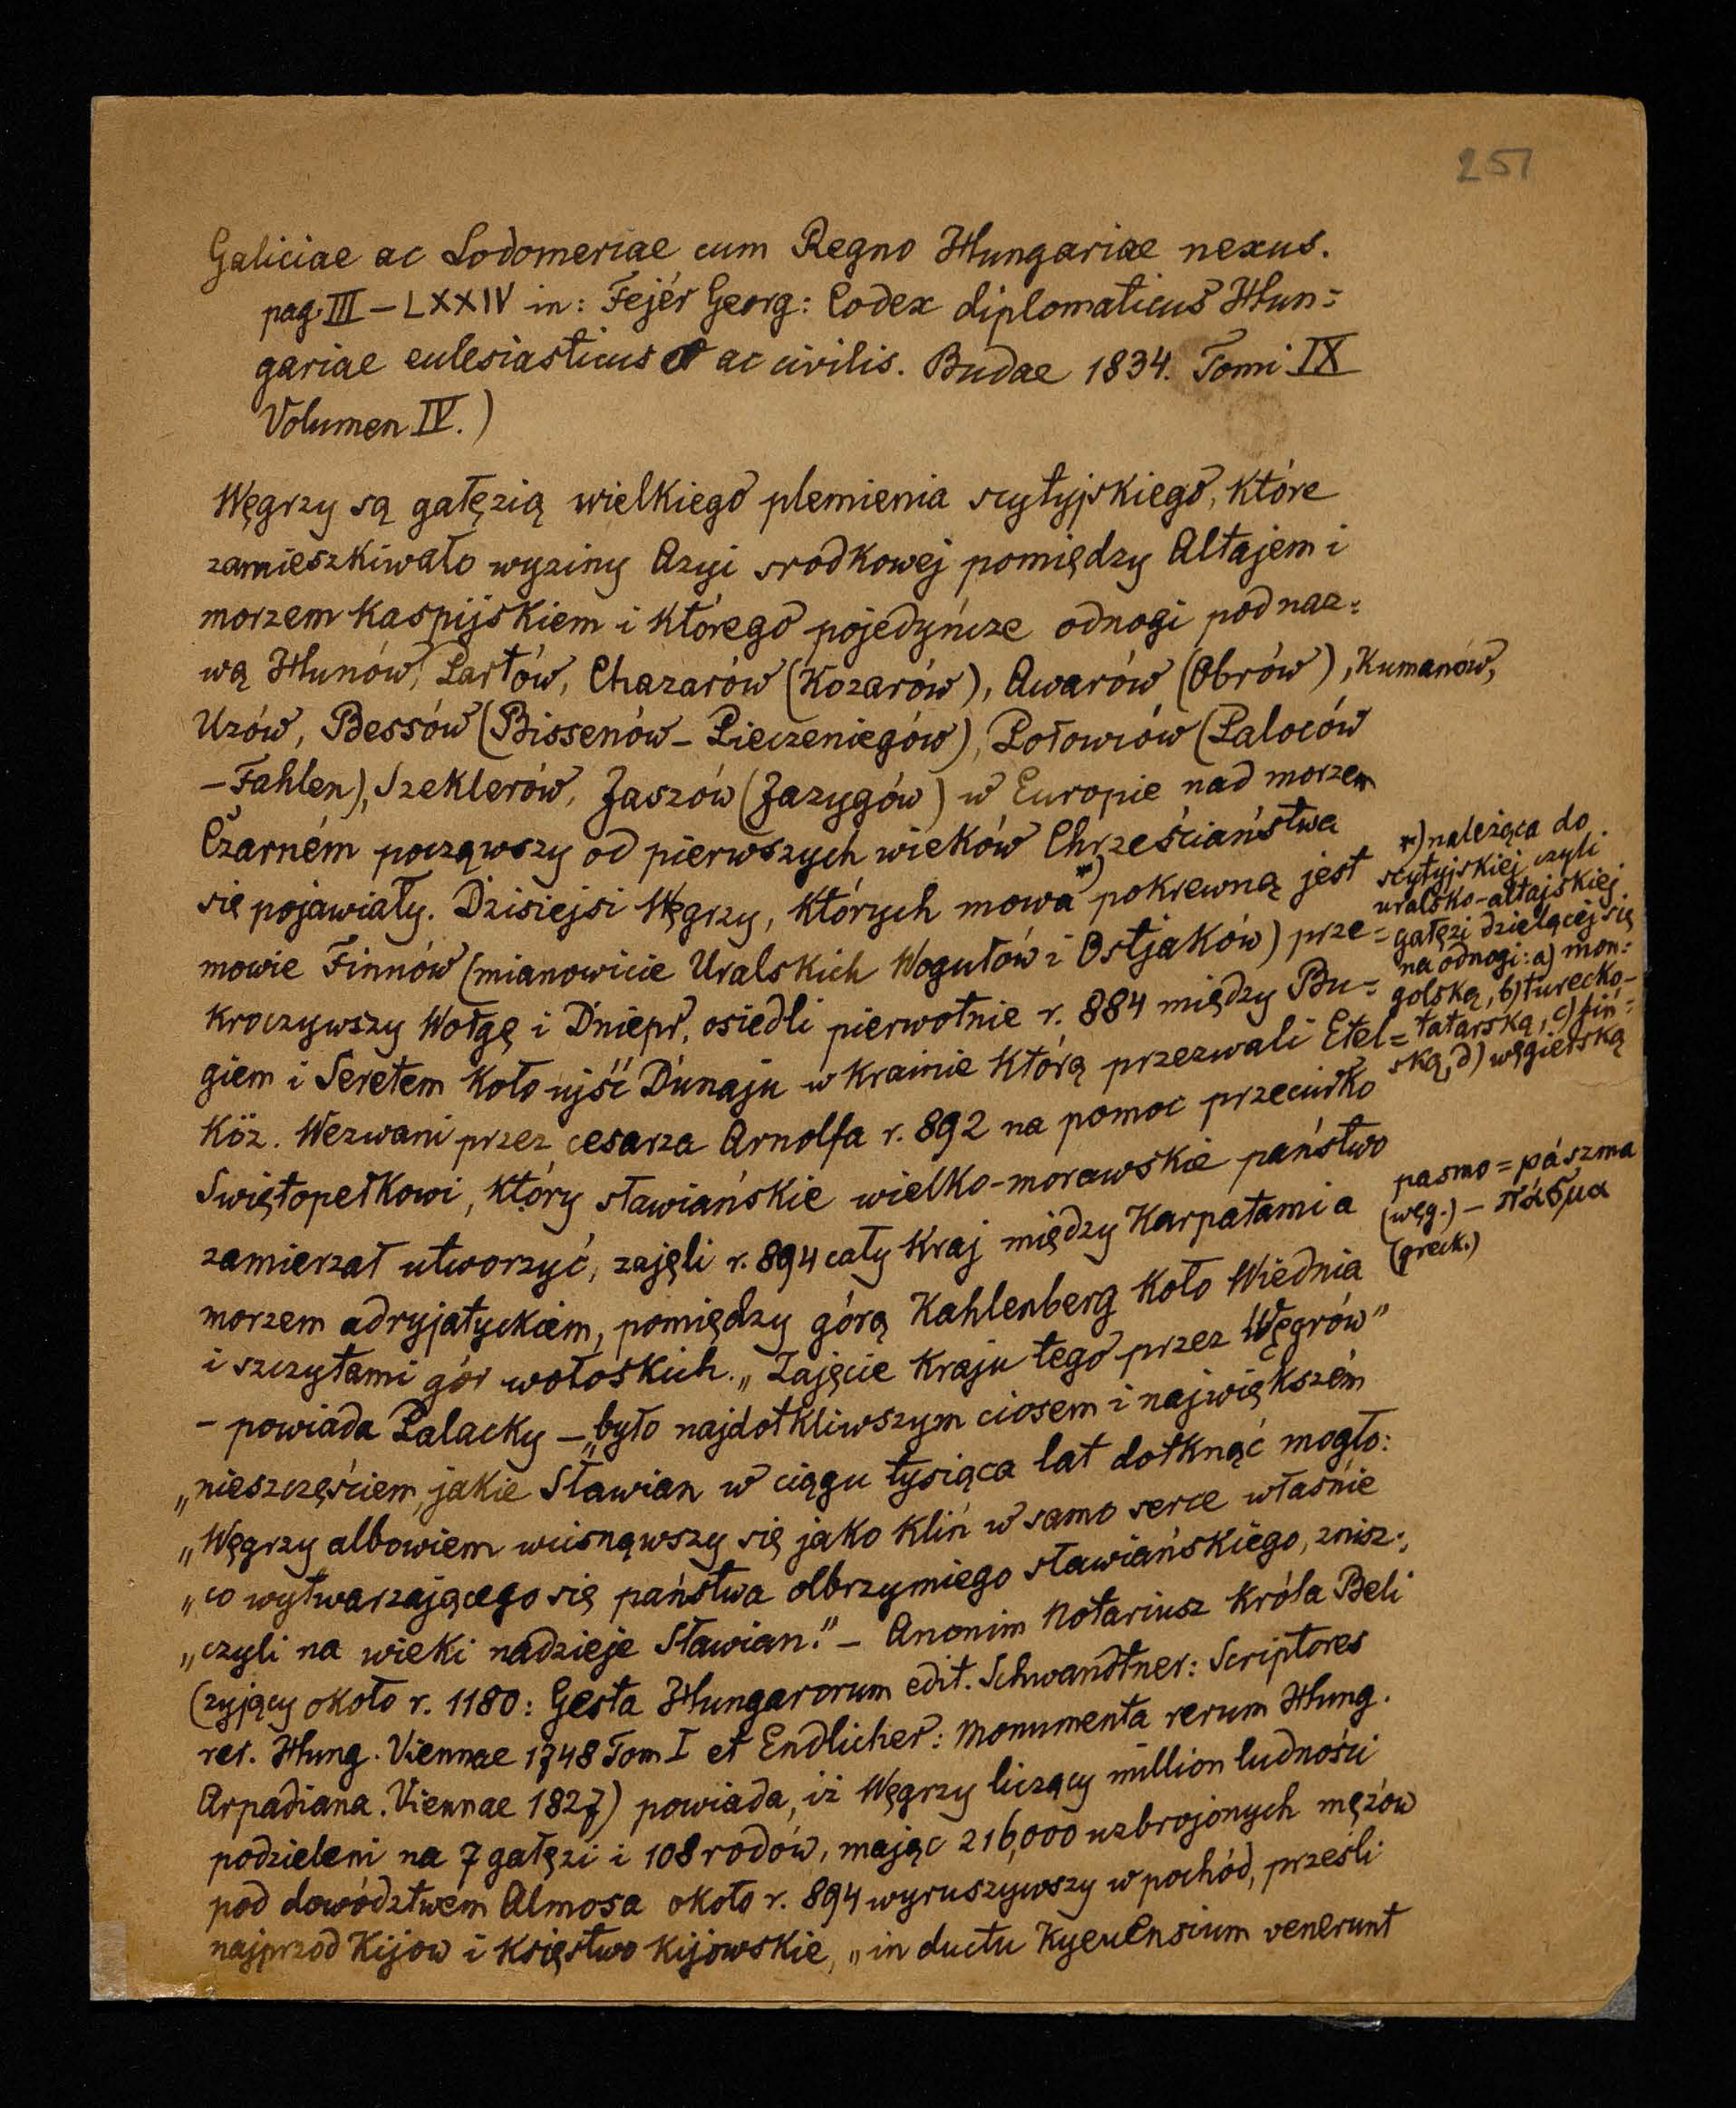 251
Galiciae ac Lodomeriae cum Regno Hungariae nexus.
pag. III – LXXIV in: Fejér Georg: Codex diplomaticus Hun=
gariae eulesiasticus ac civilis. Budae 1834. Tomi IX
Volumen IV.)
Węgrzy są gałęzią wielkiego plemienia scytyjskiego, które
zamieszkiwało wyziny Azyi srodkowej pomiędzy Altajem i
morzem Kaspijskiem i którego pojedyńcze odnogi pod naz=
wą Hunów, Partów, Chazarów (Kozarów), Awarów (Obrów), Kumanów,
Uzów, Bessów (Bissenów – Pieczeniegów), Połowców (Paloców
– Fahlen), Szeklerów, Jaszów (Jazygów) w Europie nad morzem
Czarném począwszy od pierwszych wieków Chrześciaństwa
się pojawiały. Dzisiejsi Węgrzy, których mowa *) pokrewną jest
mowie Finnów (mianowicie Uralskich Wogułów i Ostjaków) prze=
kroczywszy Wołgę i Dniepr, osiedli pierwotnie r. 884 między Bu=
giem i Seretem koło ujść Dunaju w krainie którą przezwali Etel=
Köz. Wezwani przez cesarza Arnolfa r. 892 na pomoc przeciwko
Swiętopełkowi, który sławiańskie wielko-morawskie państwo
zamierzał utworzyć, zajęli r. 894 cały kraj między Karpatami a
morzem adryjatyckiem, pomiędzy górą Kahlenberg koło Wiednia
i szczytami gór wołoskich. „Zajęcie kraju tego przez Węgrów”
– powiada Palacky – „było najdotkliwszym ciosem i największém
„nieszczęściem, jakie Sławian w ciągu tysiąca lat dotknąć mogło:
„Węgrzy albowiem wcisnąwszy się jako klin w samo serce właśnie
„co wytwarzającego się państwa olbrzymiego sławiańskiego, znisz=
„czyli na wieki nadzieje Sławian.” – Anonim Notariusz króla Beli
(żyjący około r. 1180: Gesta Hungarorum edit. Schwandtner: Scriptores
rer. Hung. Viennae 1748 Tom I et Endlicher: Monumenta rerum Hung.
Arpadiana. Viennae 1827) powiada, iż Węgrzy liczący million ludności
podzieleni na 7 gałęzi i 108 rodów, mając 216,000 uzbrojonych mężów
pod dowództwem Almosa około r. 894 wyruszywszy w pochód, prześli
najprzod Kijow i księstwo kijowskie, „in ductu Kyeuensium venerunt
*) należąca do
scytyjskiej czyli
uralsko-altajskiej
gałęzi dzielącej się
na odnogi: a) mon=
golską, b) turecko-
tatarską, c) fiń=
ską, d) węgierską
pasmo = pászma
(węg.) – πάσμα
(greck.)